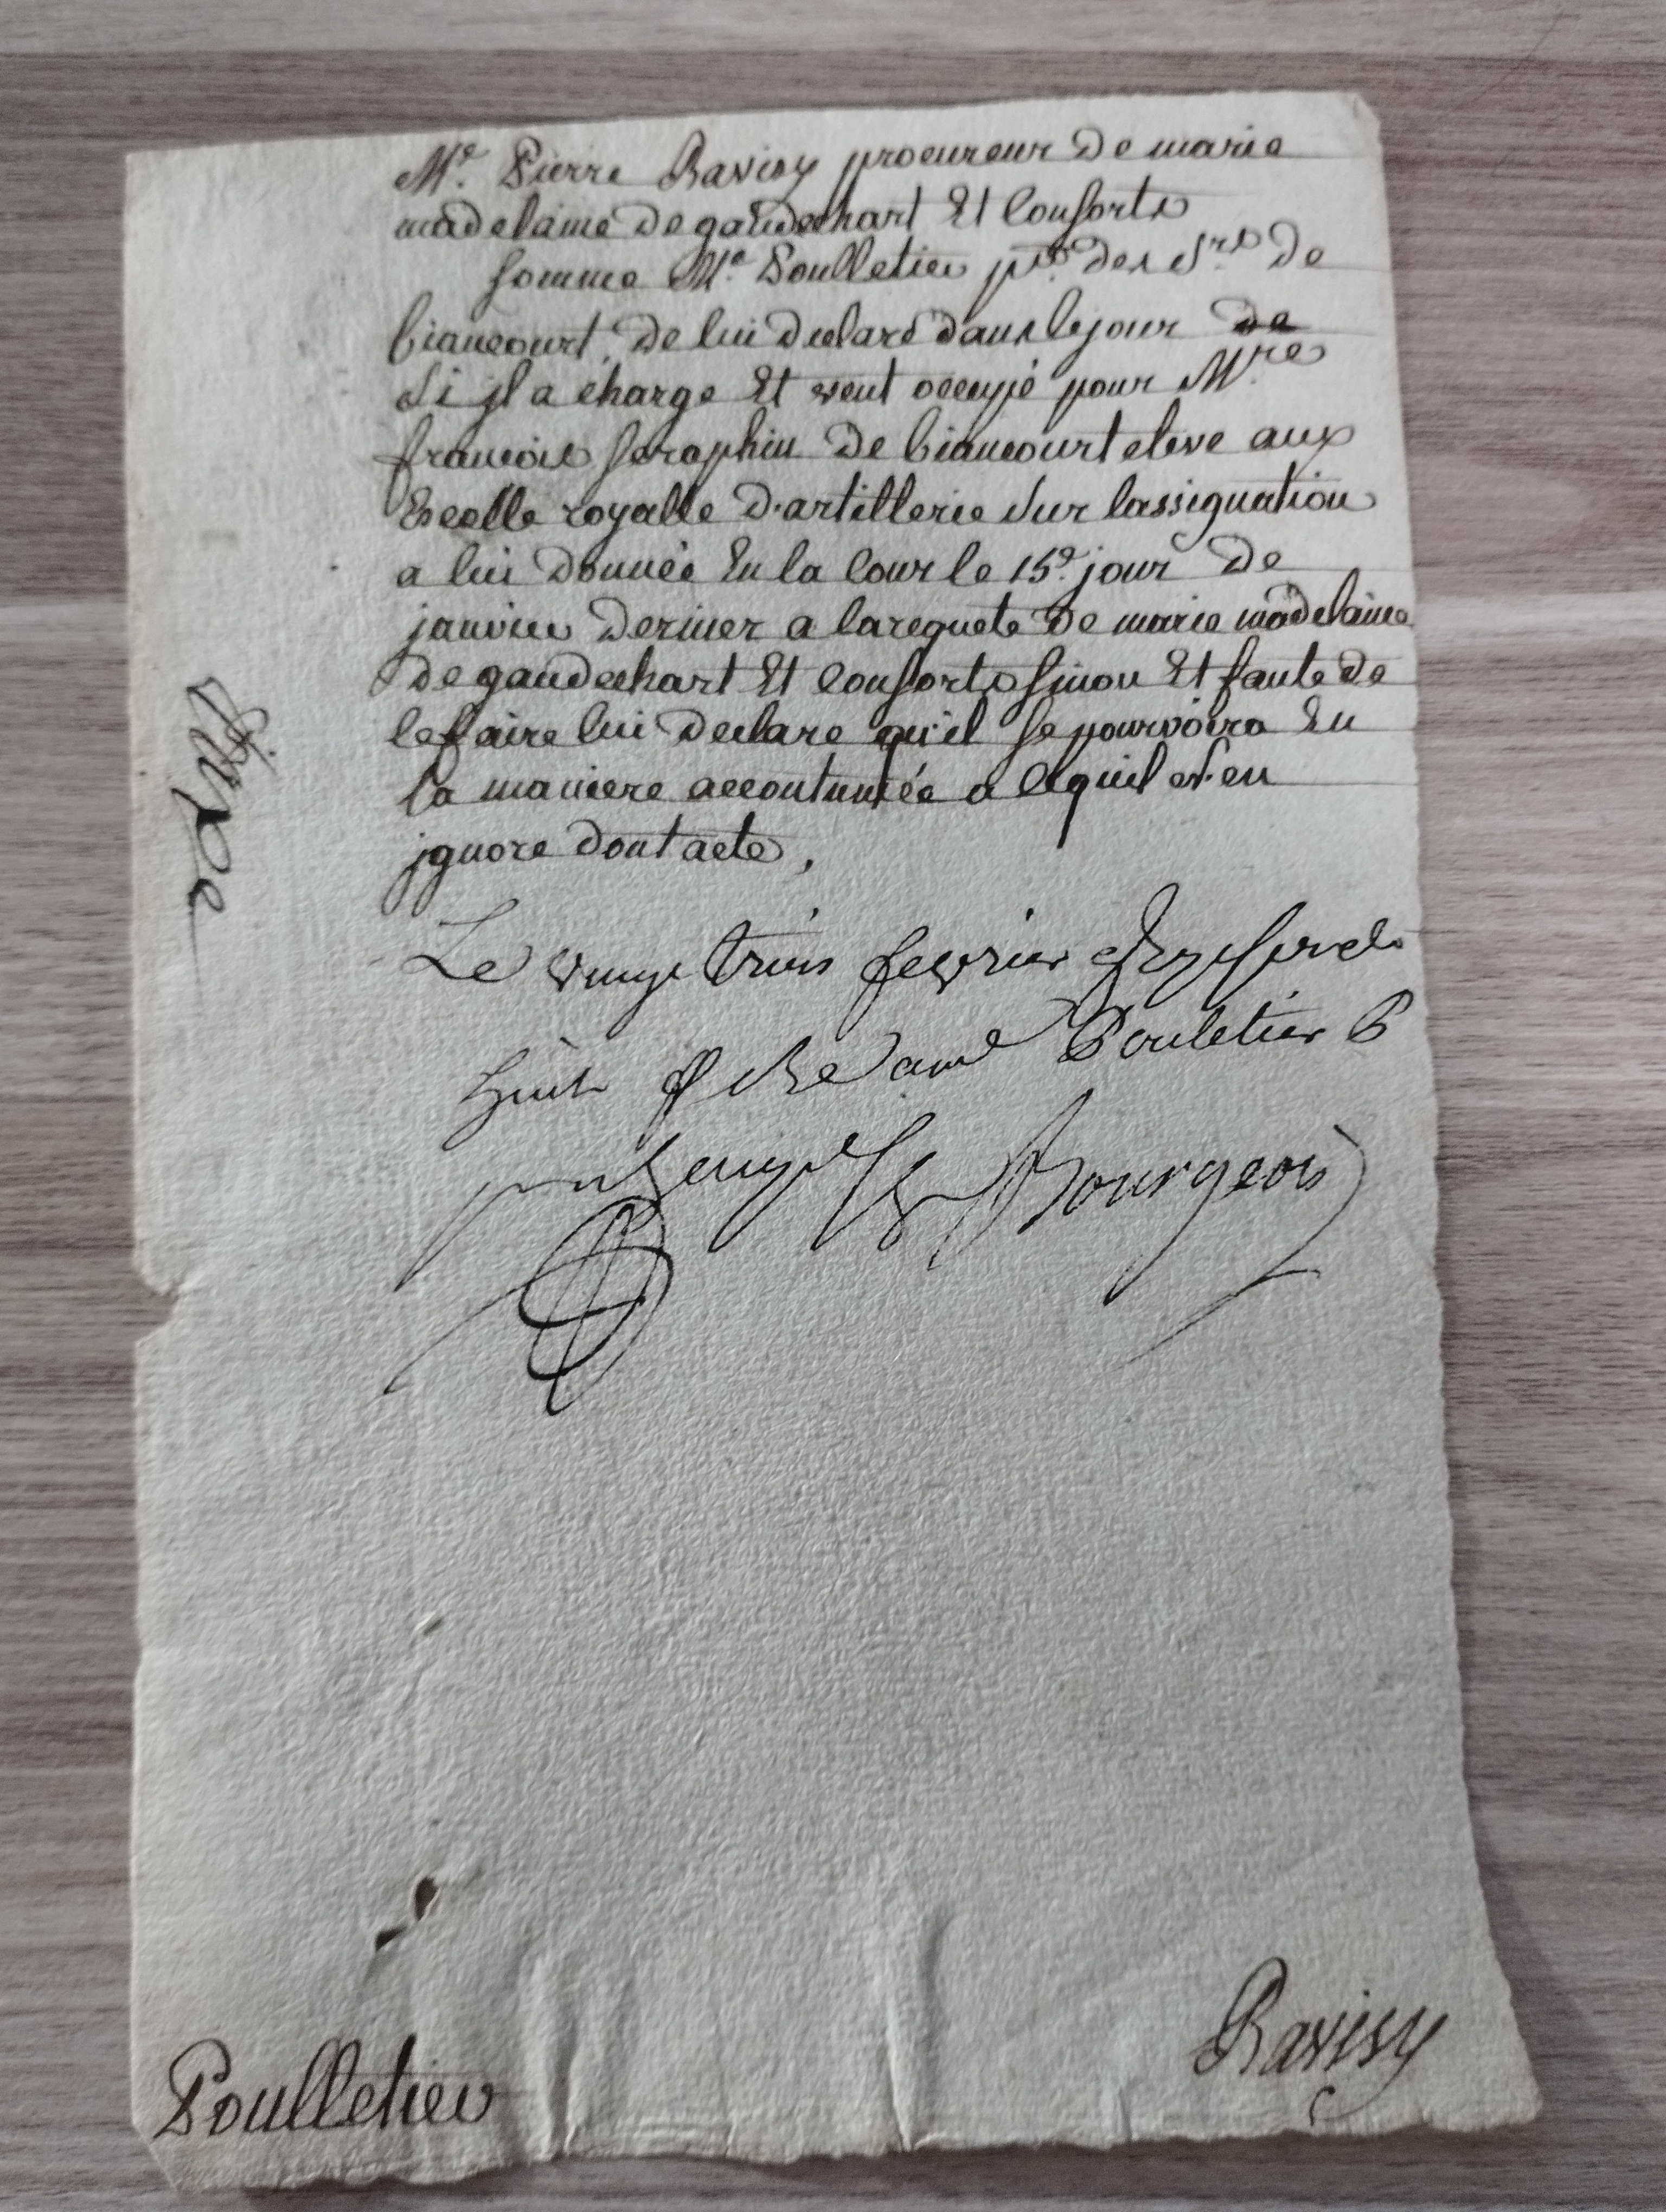 Me. Pierre Ravisy procureur De marie
madelaine De gaudechart Et Consorts
somme Me. Poulletier pr. des Srs De
biancourt, De lui Declaré dans le jour de
Si jl a charge Et veut occupé pour Mre
francois seraphin De biancourt eleve aux
Escolle royalle D'artillerie Sur lassignation
a lui Donnée En la Cour le 15e. jour De
janvier Dernier a la requete De marie madelaine
De gaudechart Et Consorts sinon Et faute De
le faire lui Declare qu'il se pourvoira En
la maniere accoutumée a ce quil n'en
jgnore Dont acte,
Le vingt trois fevrier
huit Pouletier P
Bourgeois
Poulletier
Ravisy